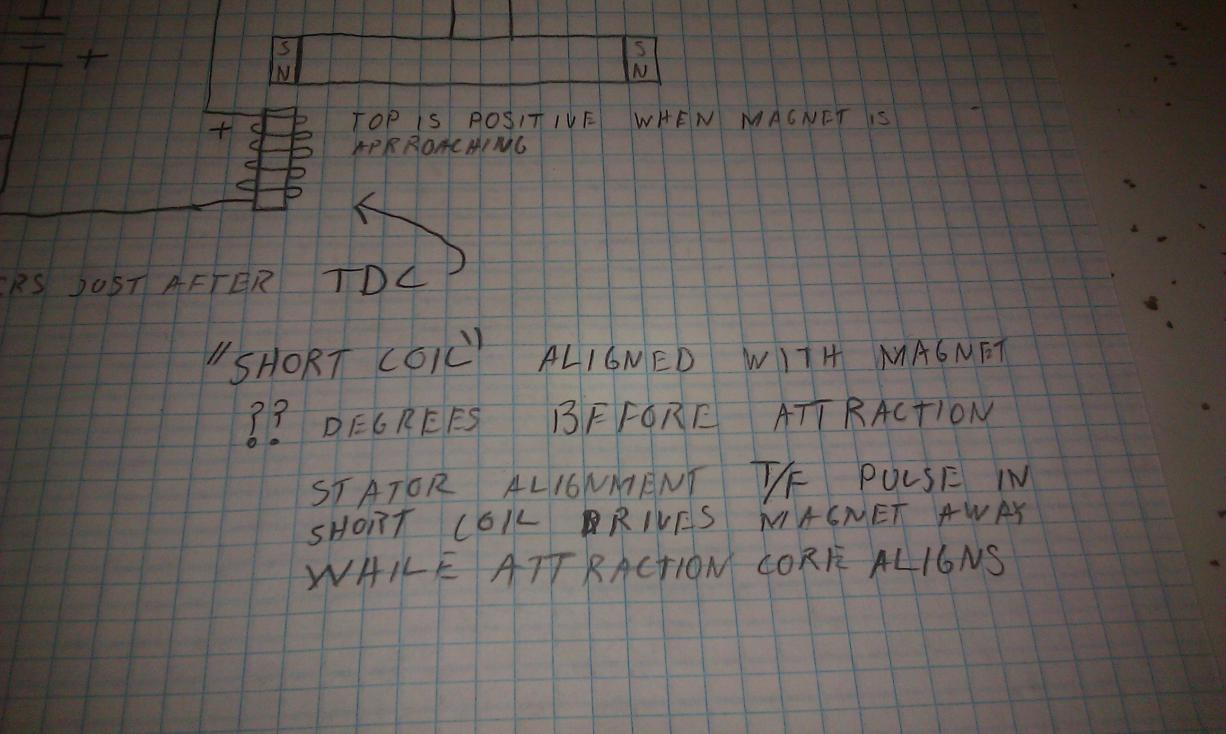 +
S S
N N
+
TOP IS POSITIVE WHEN MAGNET IS
APRROACHING
JUST AFTER TDC
"SHORT COIL" ALIGNED WITH MAGNET
?? DEGREES BEFORE ATTRACTION
STATOR ALIGNMENT T/F PULSE IN
SHORT COIL DRIVES MAGNET AWAY
WHILE ATTRACTION CORE ALIGNS